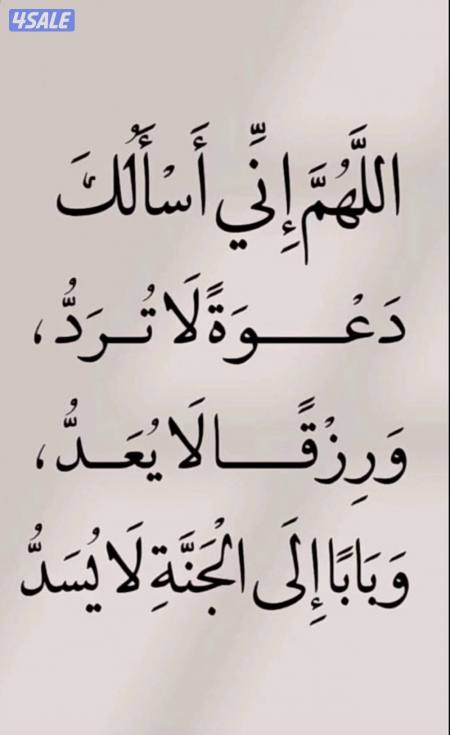 4SALE
اللَّهُمَّ إِنِّي أَسْأَلُكَ
دَعْـــــوَةً لَا تُـــرَدُّ ،
وَرِزْقًـــا لَا يُعَـــدُّ ،
وَبَابًا إِلَى الْجَنَّةِ لَا يُسَدُّ